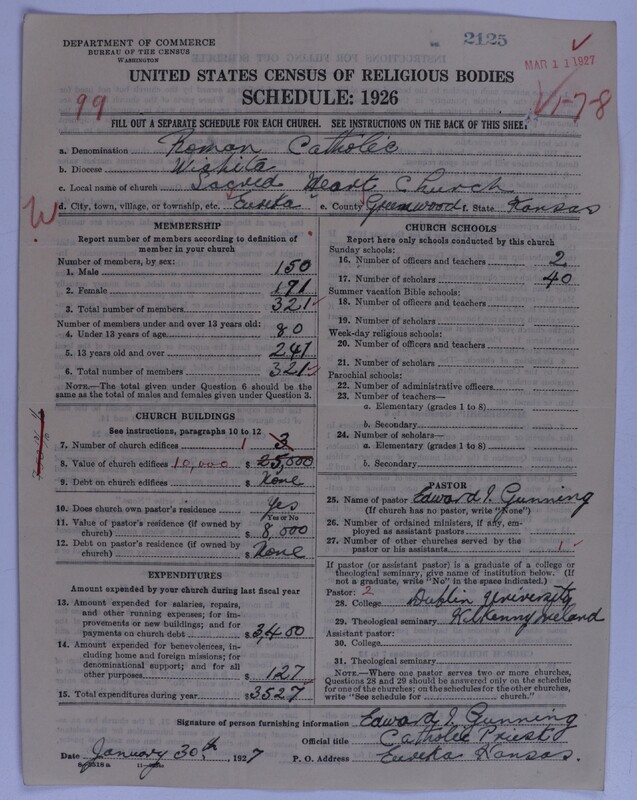 2125
MAR 11 1927
DEPARTMENT OF COMMERCE
BUREAU OF THE CENSUS
WASHINGTON
UNITED STATES CENSUS OF RELIGIOUS BODIES
SCHEDULE: 1926
99
1-7-8
FILL OUT A SEPARATE SCHEDULE FOR EACH CHURCH. SEE INSTRUCTIONS ON THE BACK OF THIS SHEET
a. Denomination Roman Catholic
b. Diocese Wichita
c. Local name of church Sacred Heart Church
W
d. City, town, village, or township, etc. Eureka e. County Greenwood f. State Kansas
MEMBERSHIP
Report number of members according to definition of
member in your church
Number of members, by sex:
1. Male 150
2. Female 171
3. Total number of members 321
Number of members under and over 13 years old:
4. Under 13 years of age 80
5. 13 years old and over 241
6. Total number of members 321
NOTE.—The total given under Question 6 should be
same as the total of males and females given under Question 3.
CHURCH BUILDINGS
See instructions, paragraphs 10 to 12
7. Number of church edifices 1 3
8. Value of church edifices 10,000 $ 25,000
9. Debt on church edifices $ None
10. Does church own pastor's residence Yes
Yes or No
11. Value of pastor's residence (if owned by
church) $ 8,000
12. Debt on pastor's residence (if owned by
church) $ None
EXPENDITURES
Amount expended by your church during last fiscal year
13. Amount expended for salaries, repairs,
and other running expenses; for im-
provements or new buildings; and for
payments on church debt $ 3,400
14. Amount expended for benevolences, in-
cluding home and foreign missions; for
denominational support; and for all
other purposes $ 127
15. Total expenditures during year $ 3527
CHURCH SCHOOLS
Report here only schools conducted by this church
Sunday schools:
16. Number of officers and teachers 2
17. Number of scholars 40
Summer vacation Bible schools:
18. Number of officers and teachers
19. Number of scholars
Week-day religious schools:
20. Number of officers and teachers
21. Number of scholars
Parochial schools:
22. Number of administrative officers
23. Number of teachers—
a. Elementary (grades 1 to 8)
b. Secondary
24. Number of scholars—
a. Elementary (grades 1 to 8)
b. Secondary
PASTOR
25. Name of pastor Edward J. Gunning
(If church has no pastor, write "None")
26. Number of ordained ministers, if any, em-
ployed as assistant pastors
27. Number of other churches served by the
pastor or his assistants 1
If pastor (or assistant pastor) is a graduate of a college or
theological seminary, give name of institution below. (If
not a graduate, write "No" in the space indicated.)
Pastor: 2
28. College Dublin University
29. Theological seminary Kilkenny Ireland
Assistant pastor:
30. College
31. Theological seminary
NOTE.—Where one pastor serves two or more churches,
Questions 28 and 29 should be answered only on the schedule
for one of the churches; on the schedules for the other churches,
write "See schedule for church."
Signature of person furnishing information Edward J. Gunning
Official title Catholic Priest
Date January 30th, 1927 P. O. Address Eureka Kansas.